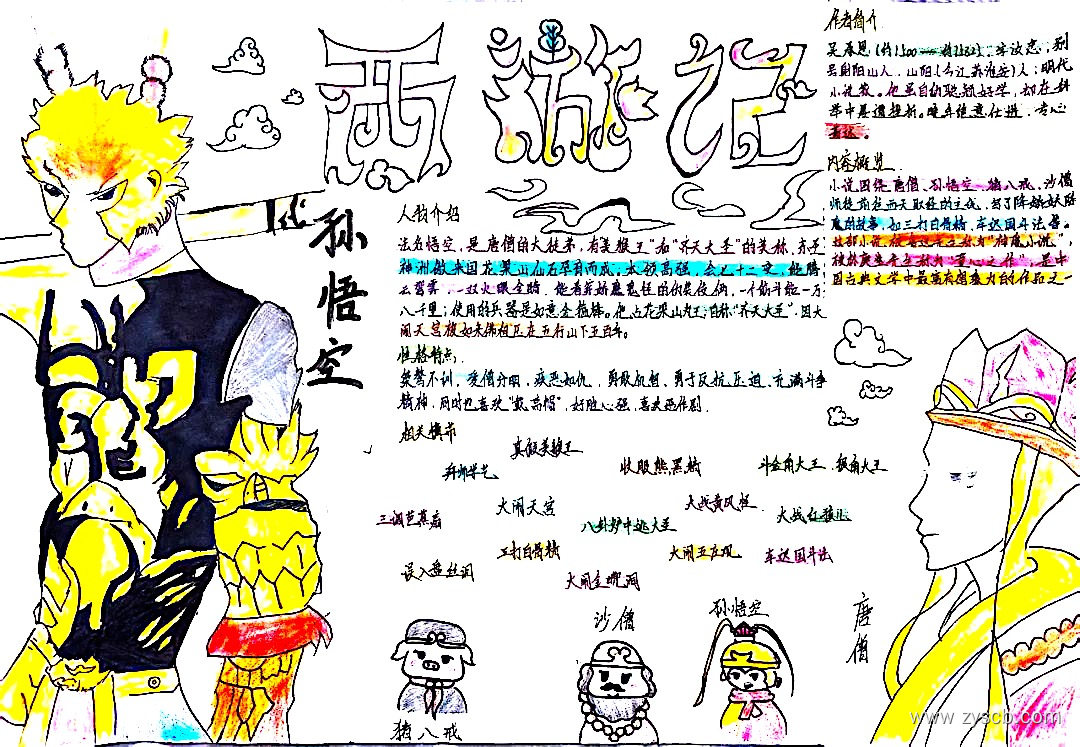 西游记
作者简介
吴承恩(约1500——约1582);字汝忠;别
号射阳山人,山阳(今江苏淮安)人;明代
小说家。他虽自幼聪颖好学,却在科
举中屡遭挫折。晚年绝意仕进,专心
著述。
内容概览
小说围绕唐僧、孙悟空、猪八戒、沙僧
师徒前往西天取经的主线,
魔的故事,如三打白骨精、车迟国斗法等。
中
国古典文学中最富有想象力的作品之一
孙悟空
人物介绍
法名悟空,是唐僧的大徒弟,有美猴王"和"齐天大圣"的美称,东胜
神洲傲来国花果山仙石孕育而成,本领高强,会七十二变,能腾
云驾雾,一双火眼金睛,能看穿妖魔鬼怪的伪装伎俩,一个筋斗能一万
八千里;使用的兵器是如意金箍棒。他占花果山为王,自称"齐天大圣",因大
闹天宫被如来佛祖压在五行山下五百年。
性格特点:
桀骜不训,爱憎分明,疾恶如仇,勇敢机智、勇于反抗压迫、充满斗争
精神,同时也喜欢"戴高帽",好胜心强,喜欢恶作剧.
相关情节
真假美猴王
拜师学艺
收服熊黑怪
斗金角大王、银角大王
大闹天宫
大战黄风怪
三调芭蕉扇
八卦炉中逃大圣
大战红孩儿
三打白骨精
大闹五庄观
车迟国斗法
误入盘丝洞
大闹金兜洞
沙僧
孙悟空
唐僧
猪八戒
www.zyscb.com